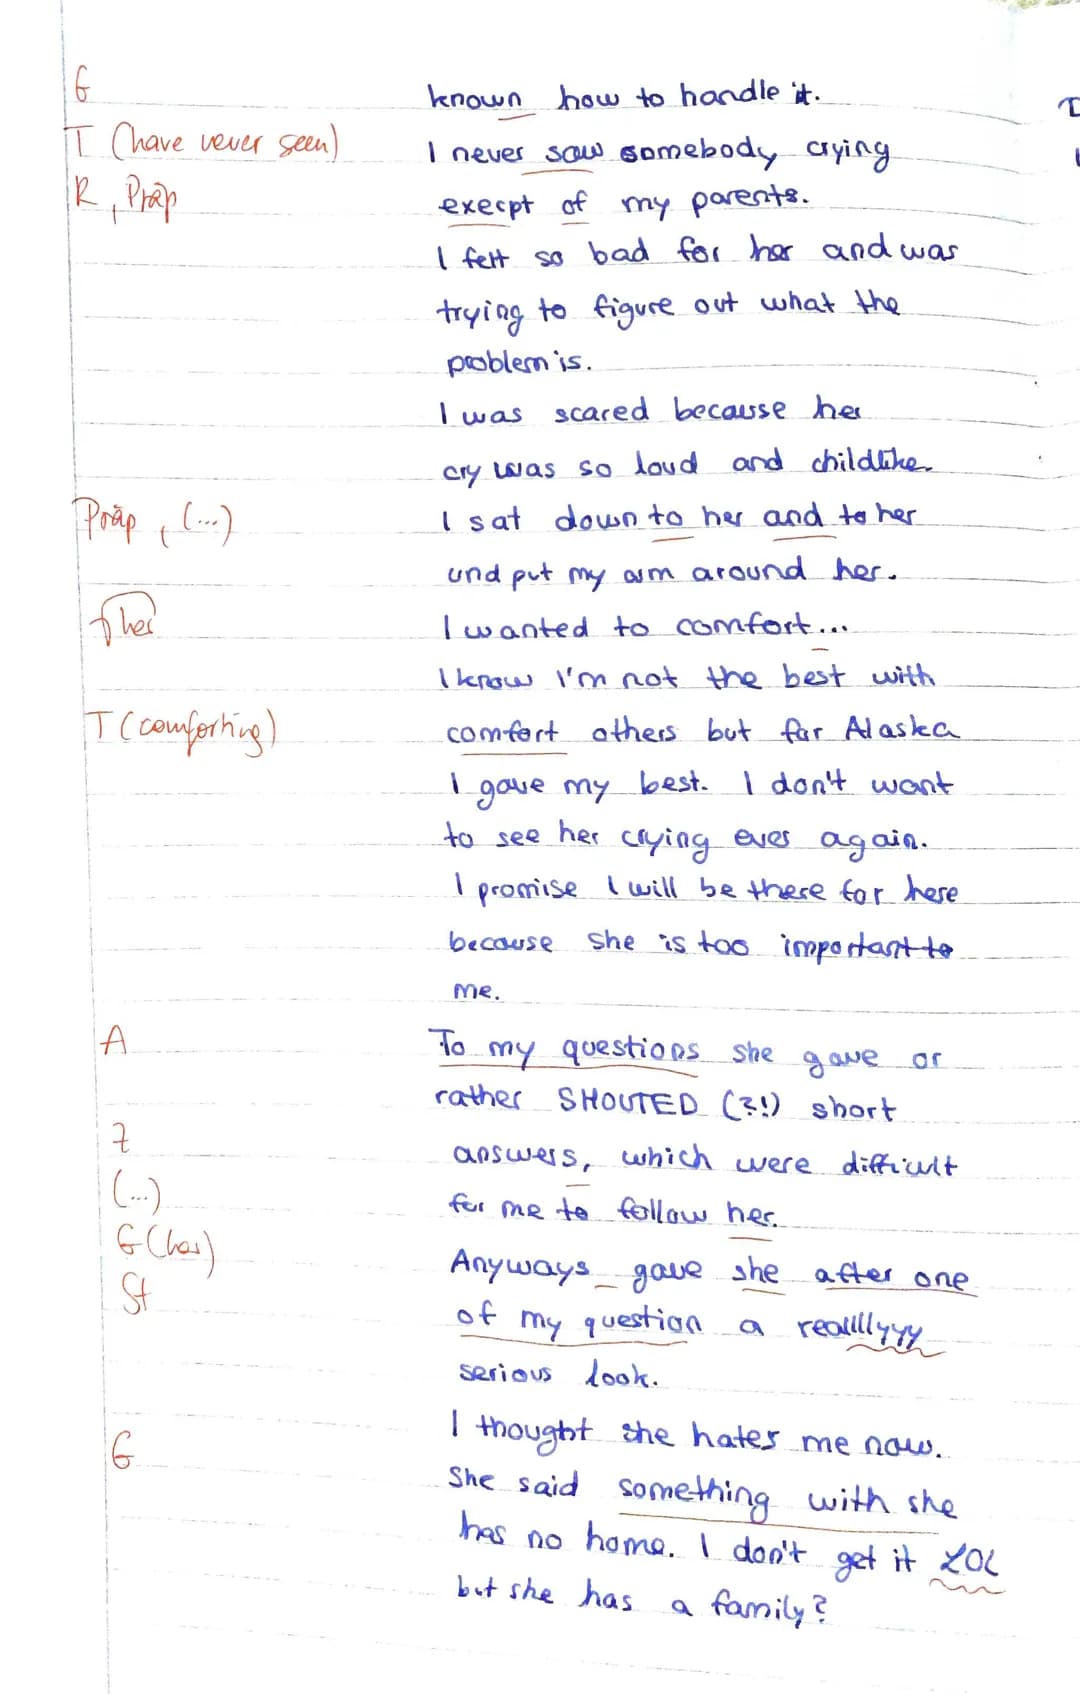 G known how to handle it.
T (have never seen) I never saw somebody crying
R, Präp execpt of my parents.
I felt so bad for her and was
trying to figure out what the
problem is.
I was scared becausse her
cry was so loud and childlike.
Präp, (...) I sat down to her and to her
und put my arm around her.
her I wanted to comfort...
I know I'm not the best with
T (comforting) comfort others but for Alaska
I gave my best. I don't want
to see her crying ever again.
I promise I will be there for here
because she is too important to
me.
A To my questions she gave or
rather SHOUTED (?!) short
Z answers, which were difficult
(...) for me to follow her.
G (her) Anyways gave she after one
St of my question a reallllyyy
serious look.
I thought she hates me now.
G She said something with she
has no home. I don't get it LOL
but she has a family?